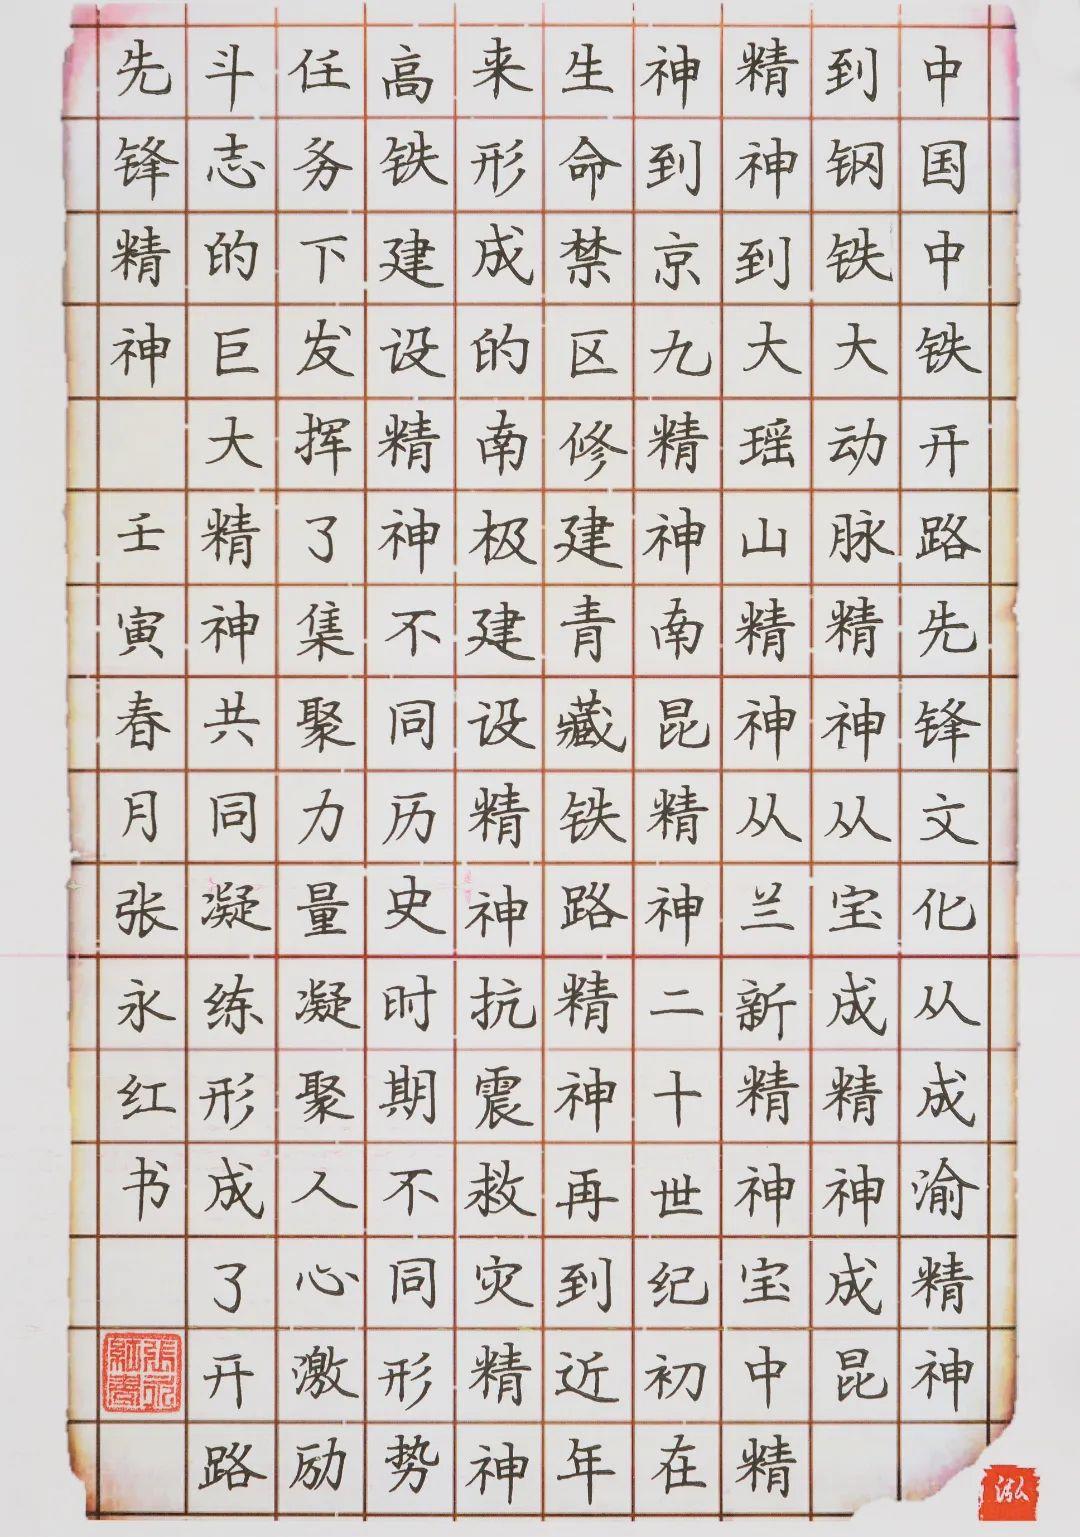 中国中铁开路先锋文化从成渝精神
到钢铁大动脉精神从宝成精神成昆
精神到大瑶山精神从兰新精神宝中精
神到京九精神南昆精神二十世纪初在
生命禁区修建青藏铁路精神再到近年
来形成的南极建设精神抗震救灾精神
高铁建设精神不同历史时期不同形势
任务下发挥了集聚力量凝聚人心激励
斗志的巨大精神共同凝练形成了开路
先锋精神 壬寅春月张永红书
泓